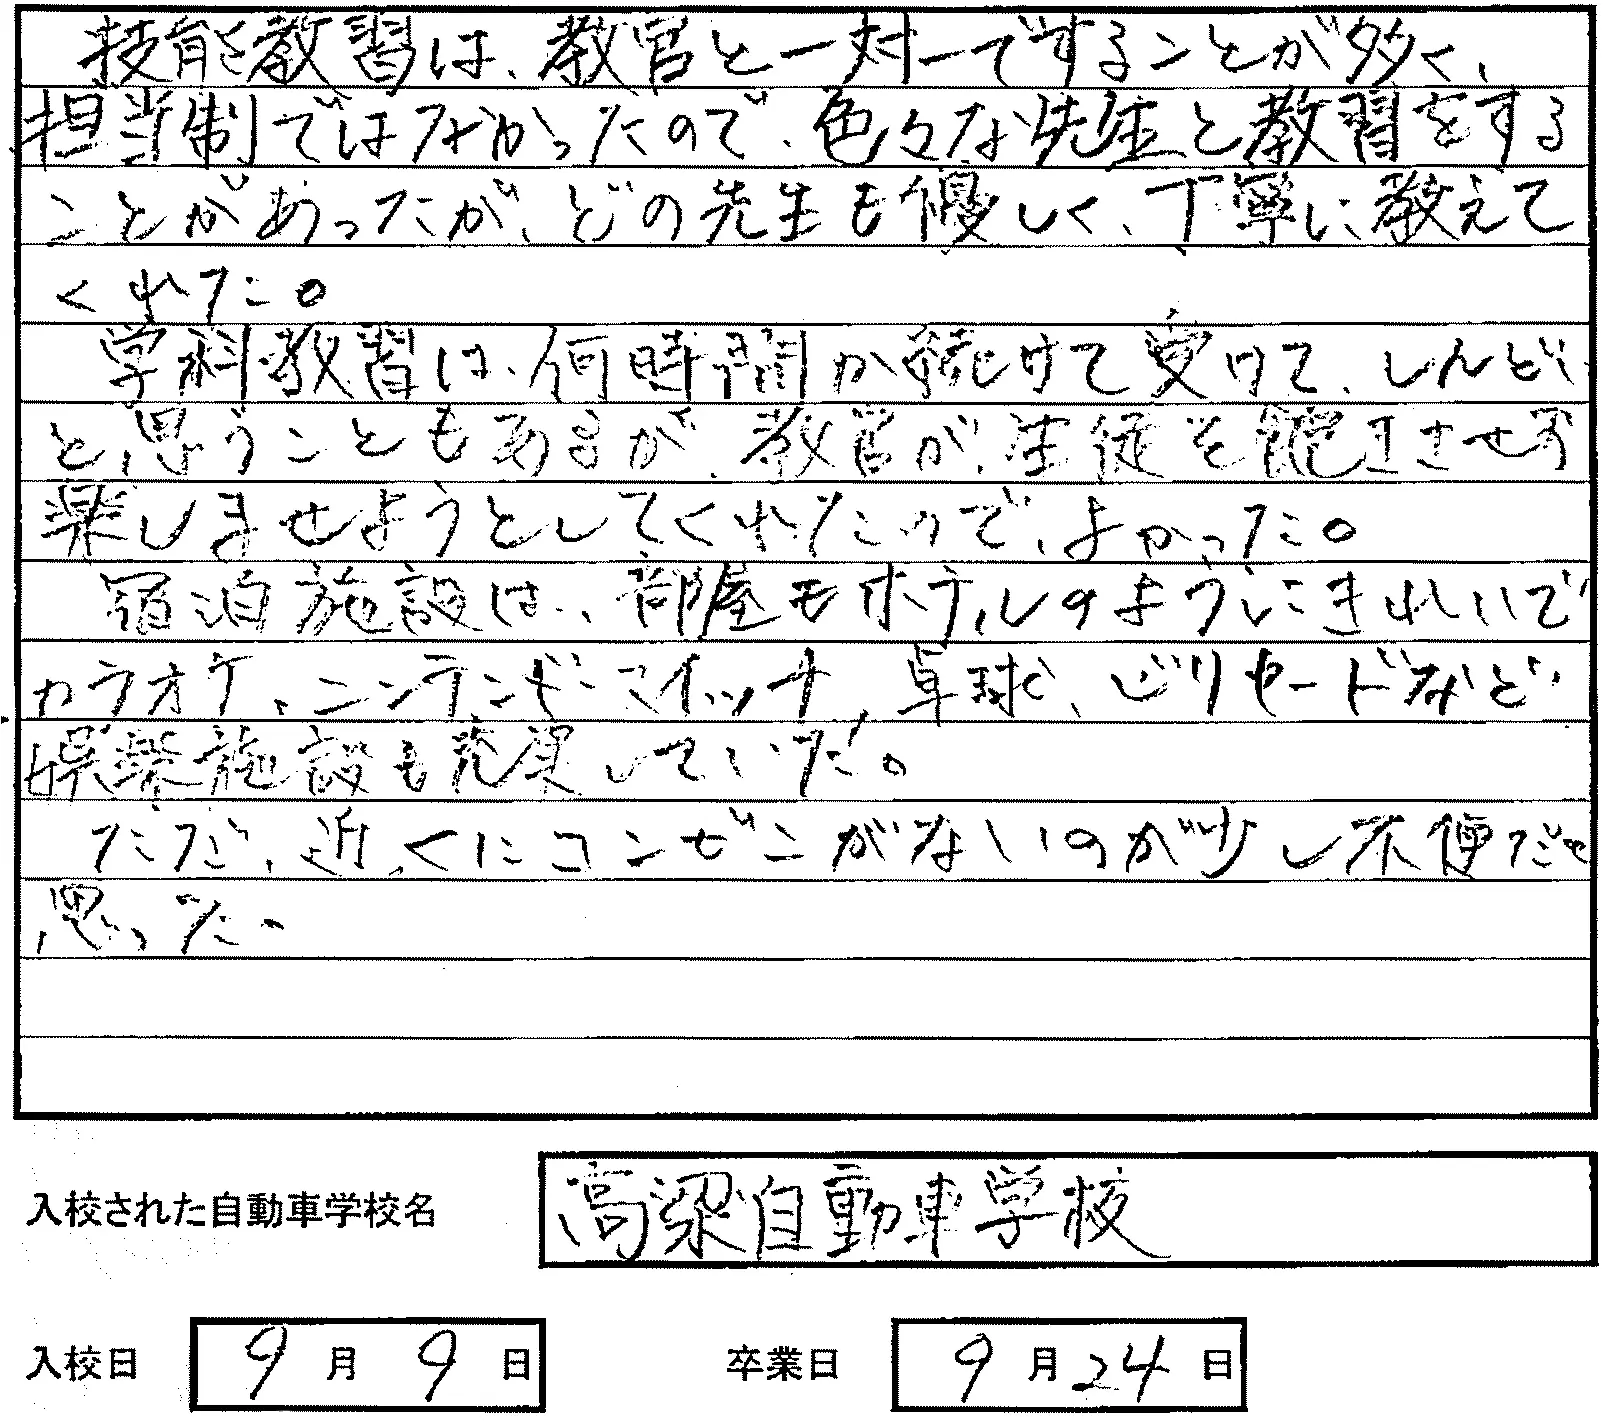 技能教習は、教官と一対一ですることが多く、
担当制ではなかったので、色々な先生と教習をする
ことがあったが、どの先生も優しく、丁寧に教えて
くれた。
学科教習は、何時間か続けて受けて、しんどい
と思うこともあるが、教官が、生徒を飽きさせず
楽しませようとしてくれたので、よかった。
宿泊施設は、部屋もホテルのようにきれいで
カラオケ、ニンテンドースイッチ、卓球、ビリヤードなど
娯楽施設も充実していた。
ただ、近くにコンビニがないのが少し不便だと
思った。
入校された自動車学校名 高梁自動車学校
入校日 9月9日 卒業日 9月24日